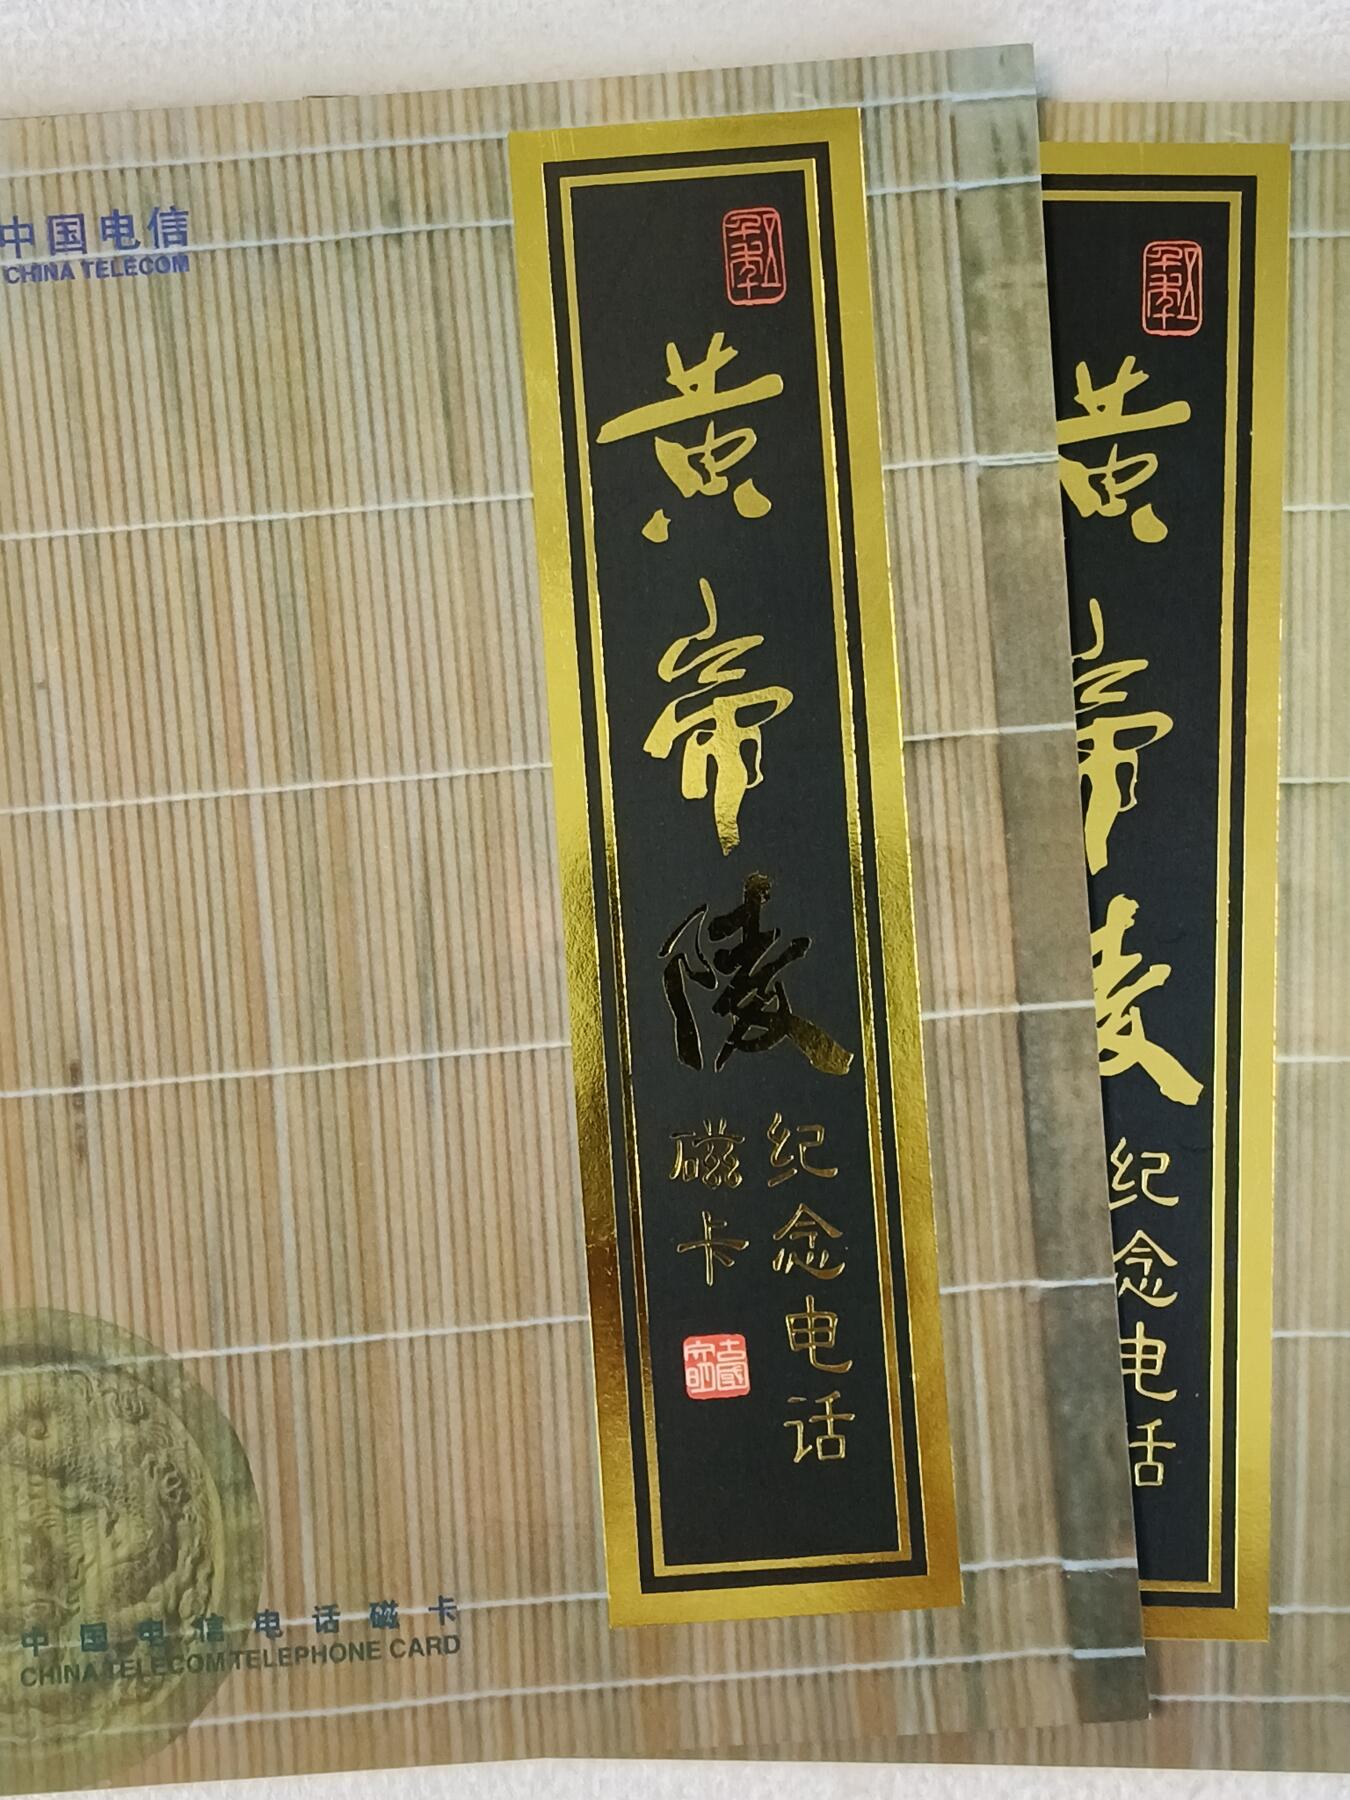 中国电信
CHINA TELECOM
黄帝陵
纪念电话
磁卡
中国电信电话磁卡
CHINA TELECOM TELEPHONE CARD
黄帝陵
纪念电话